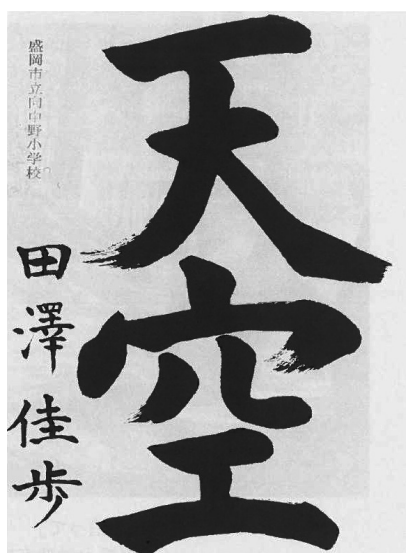 天空
盛岡市立向中野小学校
田澤佳歩